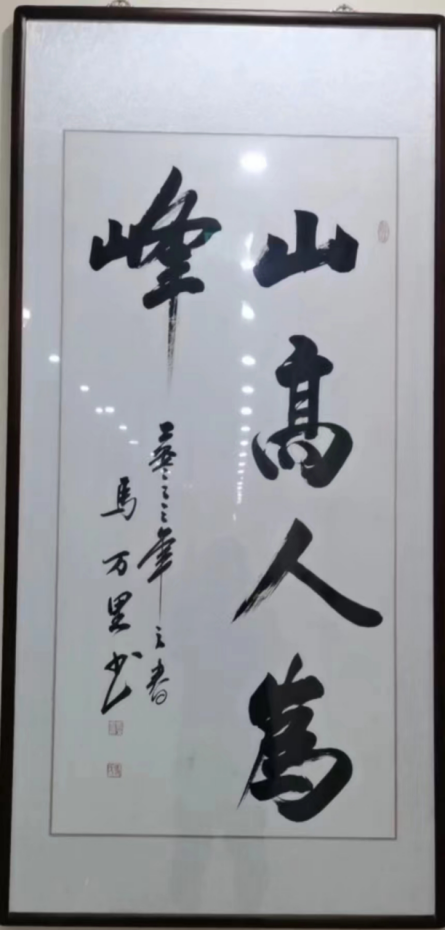 山高人為
峰
二零二二年之春
馬万里书